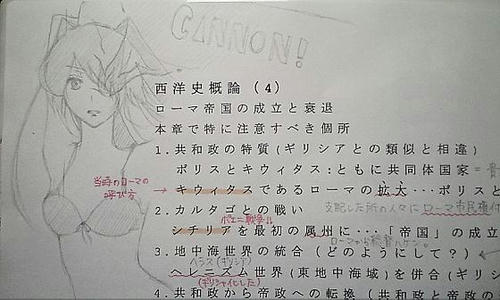 CANNON!
西洋史概論 (4)
ローマ帝国の成立と衰退
本章で特に注意すべき個所
1.共和政の特質(ギリシアとの類似と相違)
ポリスとキウィタス:ともに共同体国家=貴
当時のローマの
呼び方
→キウィタスであるローマの拡大・・・ポリスと
2.カルタゴとの戦い
支配した所の人々にローマ市民権付
ポエニ戦争!!
シチリアを最初の属州に・・・「帝国」の成立
ローマから総督
3.地中海世界の統合 (どのようにして?)
ヘラス(ギリシア)
ヘレニズム世界(東地中海域)を併合(ギリシ
(ギリシャ化した)
4.共和政から帝政への転換 (共和政と帝政の